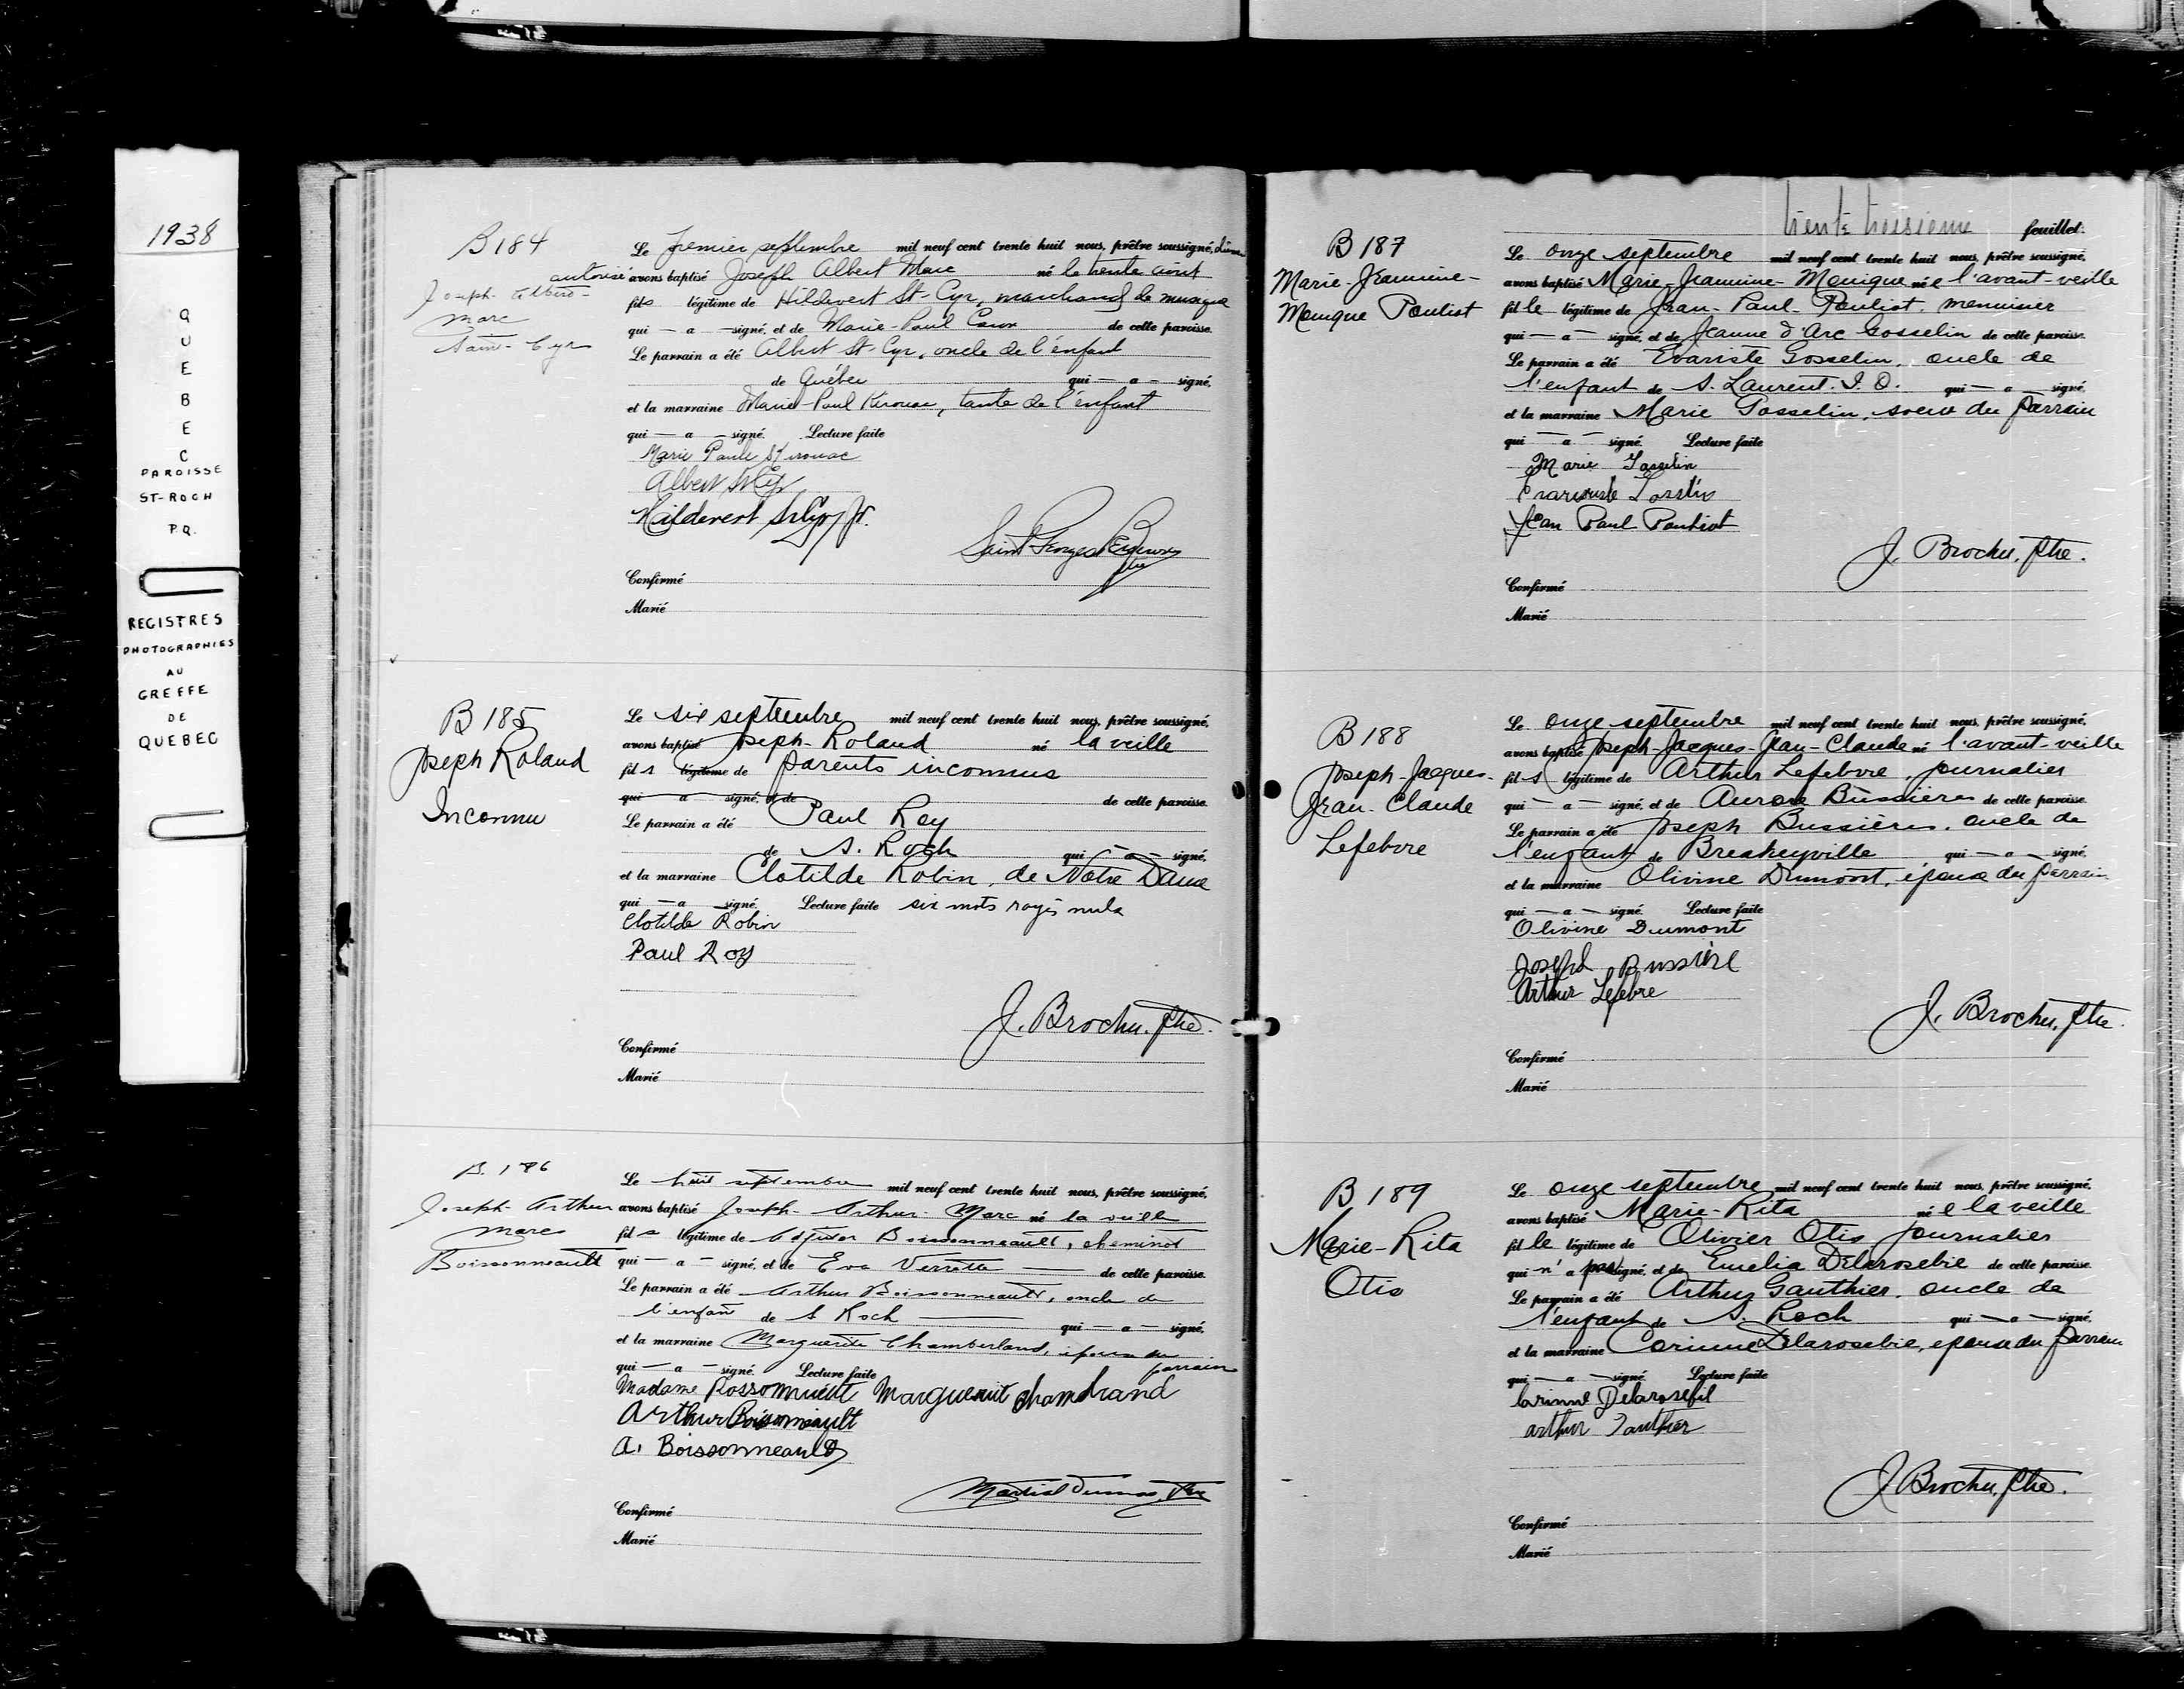 1938
QUEBEC
PAROISSE
ST-ROCH
P.Q.
REGISTRES
PHOTOGRAPHIES
AU
GREFFE
DE
QUEBEC
B 184
Joseph-Albert-
Marc
Saint-Cyr
Le premier septembre mil neuf cent trente huit nous, prêtre soussigné, dûment
autorisé avons baptisé Joseph Albert Marc né le trente août
fils légitime de Hildevert St-Cyr, marchand de musique
qui — a — signé, et de Marie-Paul Caux de cette paroisse.
Le parrain a été Albert St-Cyr, oncle de l'enfant
de Québec qui — a — signé,
et la marraine Marie-Paul Kirouac, tante de l'enfant
qui — a — signé. Lecture faite
Marie Paule Kirouac
Albert St Cyr
Hildevert St Cyr Jr.
Confirmé
Marié
B 185
Joseph Roland
Inconnu
Le six septembre mil neuf cent trente huit nous, prêtre soussigné,
avons baptisé Joseph-Roland né la veille
fils légitime de parents inconnus
qui a signé, et de de cette paroisse.
Le parrain a été Paul Roy
de S. Roch qui — a — signé,
et la marraine Clotilde Robin, de Notre Dame
qui — a — signé. Lecture faite six mots rayés nuls
Clotilde Robin
Paul Roy
J. Brochu, ptre.
Confirmé
Marié
B. 186
Joseph-Arthur
Marc
Boissonneault
Le huit septembre mil neuf cent trente huit nous, prêtre soussigné,
avons baptisé Joseph-Arthur-Marc né la veille
fils légitime de Adjutor Boissonneault, cheminot
qui — a — signé, et de Eva Verrette — de cette paroisse.
Le parrain a été Arthur Boissonneault, oncle de
l'enfant de S Roch — qui — a — signé,
et la marraine Marguerite Chamberland, épouse du
parrain
qui — a — signé. Lecture faite
Madame
Arthur Boissonneault
A. Boissonneault
Martial Dumas, ptre
Confirmé
Marié
trente troisième feuillet.
B 187
Marie-Jeannine-
Monique Pouliot
Le onze septembre mil neuf cent trente huit nous, prêtre soussigné,
avons baptisé Marie-Jeannine-Monique née l'avant-veille
fille légitime de Jean-Paul-Pouliot, menuisier
qui — a — signé, et de Jeanne d'Arc Gosselin de cette paroisse.
Le parrain a été Evariste Gosselin, oncle de
l'enfant de S. Laurent. I. O. qui — a — signé,
et la marraine Marie Gosselin, soeur du parrain
qui — a — signé. Lecture faite
Marie Gosselin
Evariste Gosselin
Jean Paul Pouliot
J. Brochu, ptre.
Confirmé
Marié
B 188
Joseph-Jacques-
Jean-Claude
Lefebvre
Le onze septembre mil neuf cent trente huit nous, prêtre soussigné,
avons baptisé Joseph-Jacques-Jean-Claude né l'avant-veille
fils légitime de Arthur Lefebvre, journalier
qui — a — signé, et de Aurore Bussières de cette paroisse.
Le parrain a été Joseph Bussières, oncle de
l'enfant de Breakeyville qui — a — signé,
et la marraine Olivine Dumont, épouse du parrain
qui — a — signé. Lecture faite
Olivine Dumont
Joseph Bussière
Arthur Lefebre
J. Brochu, ptre.
Confirmé
Marié
B 189
Marie-Rita
Otis
Le onze septembre mil neuf cent trente huit nous, prêtre soussigné,
avons baptisé Marie-Rita née la veille
fille légitime de Olivier Otis journalier
qui n'a pas signé, et de Emelia Delarosebie de cette paroisse.
Le parrain a été Arthur Gauthier, oncle de
l'enfant de S. Roch qui — a — signé,
et la marraine Corinne Delarosebie, épouse du parrain
qui — a — signé. Lecture faite
Corinne Delarosebil
Arthur Gauthier
J. Brochu, ptre.
Confirmé
Marié